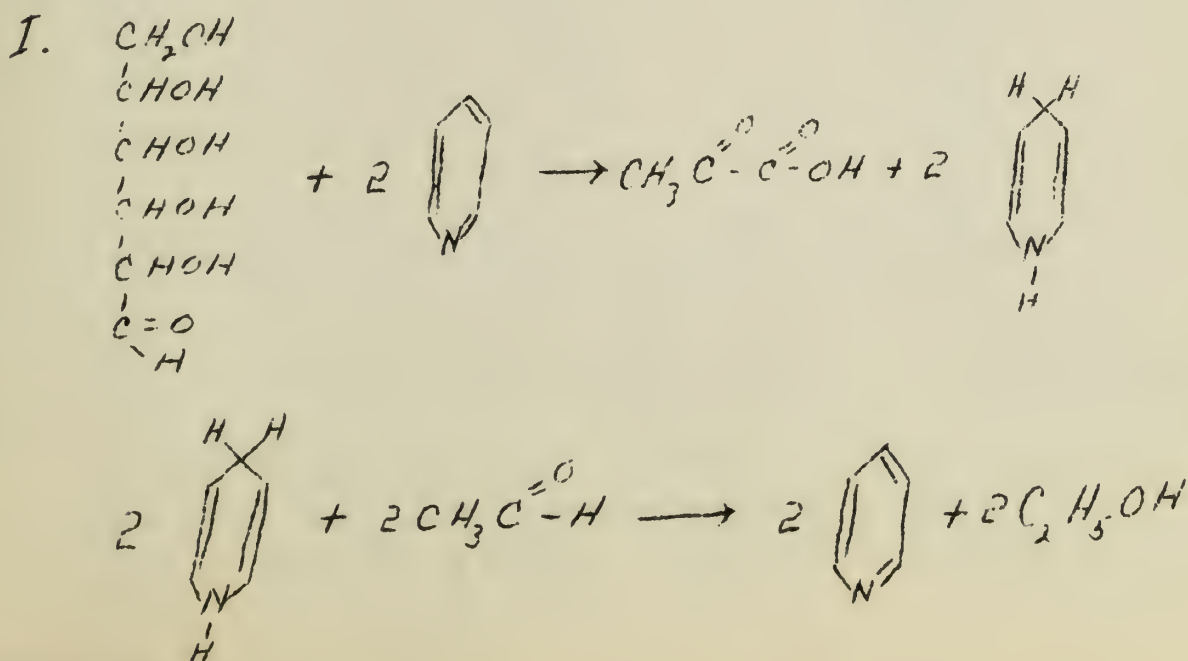 I.
CH₂OH
CHOH
CHOH
CHOH
CHOH
C=O
H
+ 2 N → CH₃C(=O)-C(=O)-OH + 2 H H N H
2 H H N H + 2CH₃C(=O)-H → 2 N + 2C₂H₅OH